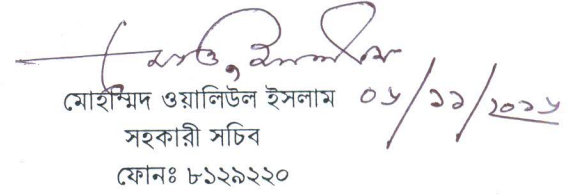 মোহাম্মিদ ওয়ালিউল ইসলাম ০৬/১১/২০১৬
সহকারী সচিব
ফোনঃ ৮১২৯২২০